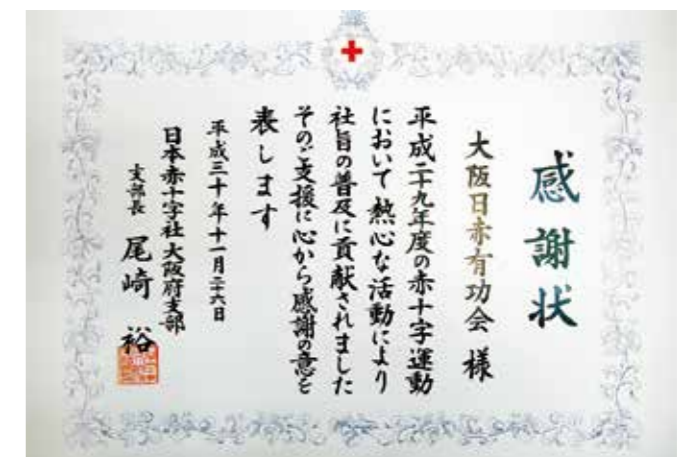 感謝状
大阪日赤有功会 様
平成二十九年度の赤十字運動
において熱心な活動により
社旨の普及に貢献されました
そのご支援に心から感謝の意を
表します
平成三十年十一月二十六日
日本赤十字社大阪府支部
支部長 尾崎 裕